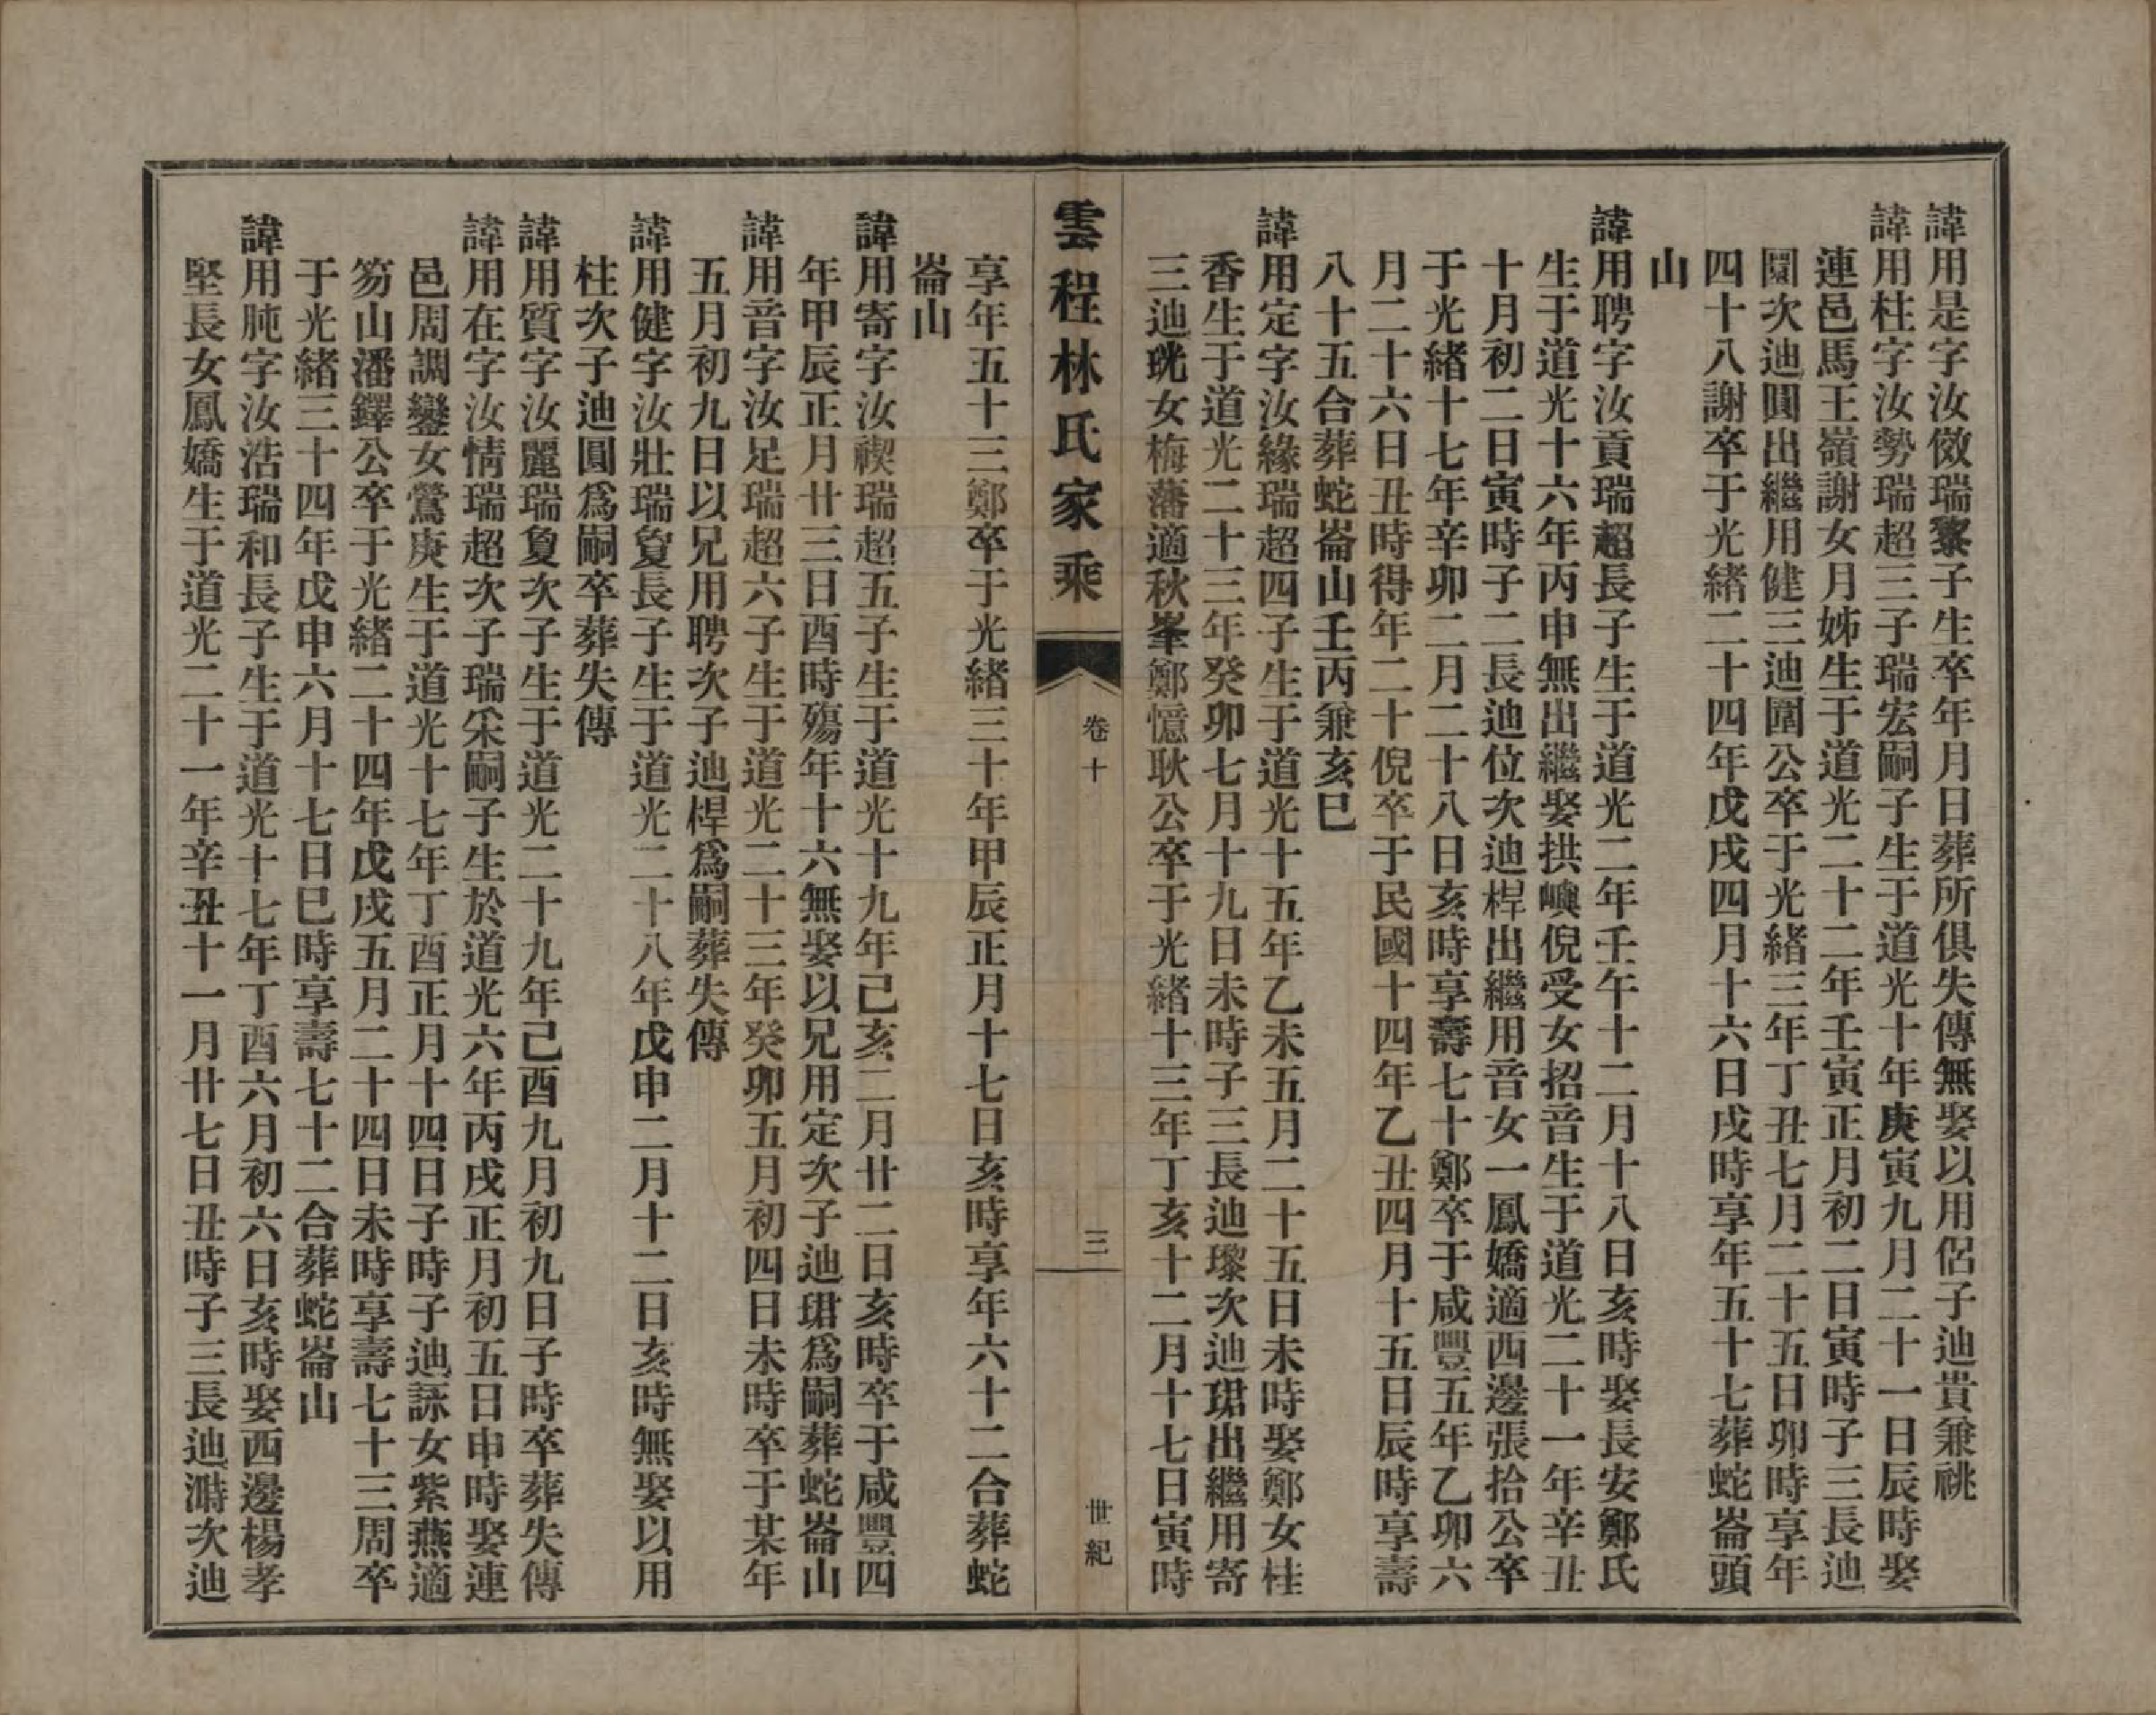 諱用是字汝傚瑞黎子生卒年月日葬所俱失傳無娶以用侶子迪貴兼祧
諱用柱字汝勢瑞超三子瑞宏嗣子生于道光十年庚寅九月二十一日辰時娶
連邑馬王嶺謝女月姊生于道光二十二年壬寅正月初二日寅時子三長迪
圜次迪圓出繼用健三迪圍公卒于光緒三年丁丑七月二十五日卯時享年
四十八謝卒于光緒二十四年戊戌四月十六日戌時享年五十七葬蛇崙頭
山
諱用聘字汝貢瑞超長子生于道光二年壬午十二月十八日亥時娶長安鄭氏
生于道光十六年丙申無出繼娶拱嶼倪受女招音生于道光二十一年辛丑
十月初二日寅時子二長迪位次迪桿出繼用音女一鳳嬌適西邊張拾公卒
于光緒十七年辛卯二月二十八日亥時享壽七十鄭卒于咸豐五年乙卯六
月二十六日丑時得年二十倪卒于民國十四年乙丑四月十五日辰時享壽
八十五合葬蛇崙山壬丙兼亥巳
諱用定字汝緣瑞超四子生于道光十五年乙未五月二十五日未時娶鄭女桂
香生于道光二十三年癸卯七月十九日未時子三長迪瓈次迪珺出繼用寄
三迪珖女梅藩適秋峯鄭憶耿公卒于光緒十三年丁亥十二月十七日寅時
雲程林氏家乘
卷十
三
世紀
享年五十三鄭卒于光緒三十年甲辰正月十七日亥時享年六十二合葬蛇
崙山
諱用寄字汝禊瑞超五子生于道光十九年己亥二月廿二日亥時卒于咸豐四
年甲辰正月廿三日酉時殤年十六無娶以兄用定次子迪珺爲嗣葬蛇崙山
諱用音字汝足瑞超六子生于道光二十三年癸卯五月初四日未時卒于某年
五月初九日以兄用聘次子迪桿爲嗣葬失傳
諱用健字汝壯瑞敻長子生于道光二十八年戊申二月十二日亥時無娶以用
柱次子迪圓爲嗣卒葬失傳
諱用質字汝麗瑞敻次子生于道光二十九年己酉九月初九日子時卒葬失傳
諱用在字汝情瑞超次子瑞寀嗣子生於道光六年丙戌正月初五日申時娶連
邑周調鑾女鶯庚生于道光十七年丁酉正月十四日子時子迪詠女紫燕適
笏山潘鐸公卒于光緒二十四年戊戌五月二十四日未時享壽七十三周卒
于光緒三十四年戊申六月十七日巳時享壽七十二合葬蛇崙山
諱用肫字汝浩瑞和長子生于道光十七年丁酉六月初六日亥時娶西邊楊孝
堅長女鳳嬌生于道光二十一年辛丑十一月廿七日丑時子三長迪溡次迪